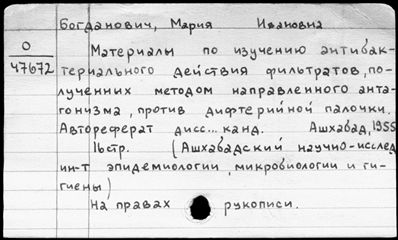 Богданович, Мария Ивановна
О
47672
Материалы по изучению антибак-
териального действия фильтратов, по-
лученных методом направленного анта-
гонизма, против дифтерийной палочки.
Автореферат дисс... канд. Ашхабад, 1955
16стр. (Ашхабадский научно-исслед
ин-т эпидемиологии, микробиологии и ги-
гиены)
На правах рукописи.